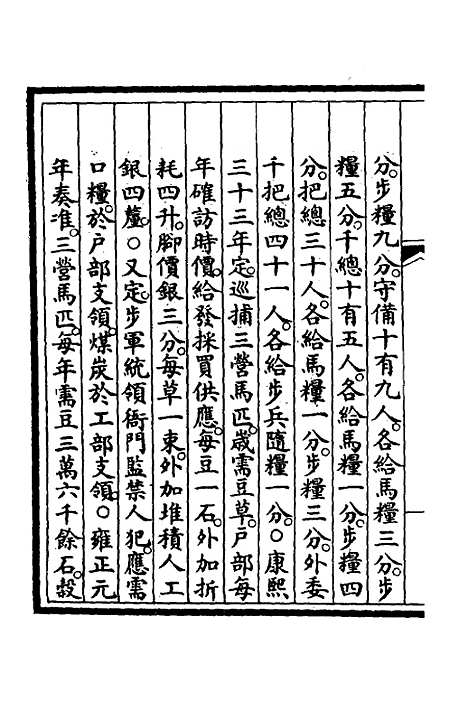 分。步糧九分。守備十有九人。各給馬糧三分。步
糧五分。千總十有五人。各給馬糧一分。步糧四
分。把總三十人。各給馬糧一分。步糧三分。外委
千把總四十一人。各給步兵隨糧一分。○康熙
三十三年定。巡捕三營馬匹。歲需豆草。戶部每
年確訪時價。給發採買供應。每豆一石。外加折
耗四升。腳價銀三分。每草一束。外加堆積人工
銀四釐。○又定。步軍統領衙門監禁人犯。應需
口糧。於戶部支領。煤炭於工部支領。○雍正元
年奏准。三營馬匹。每年需豆三萬六千餘石。穀